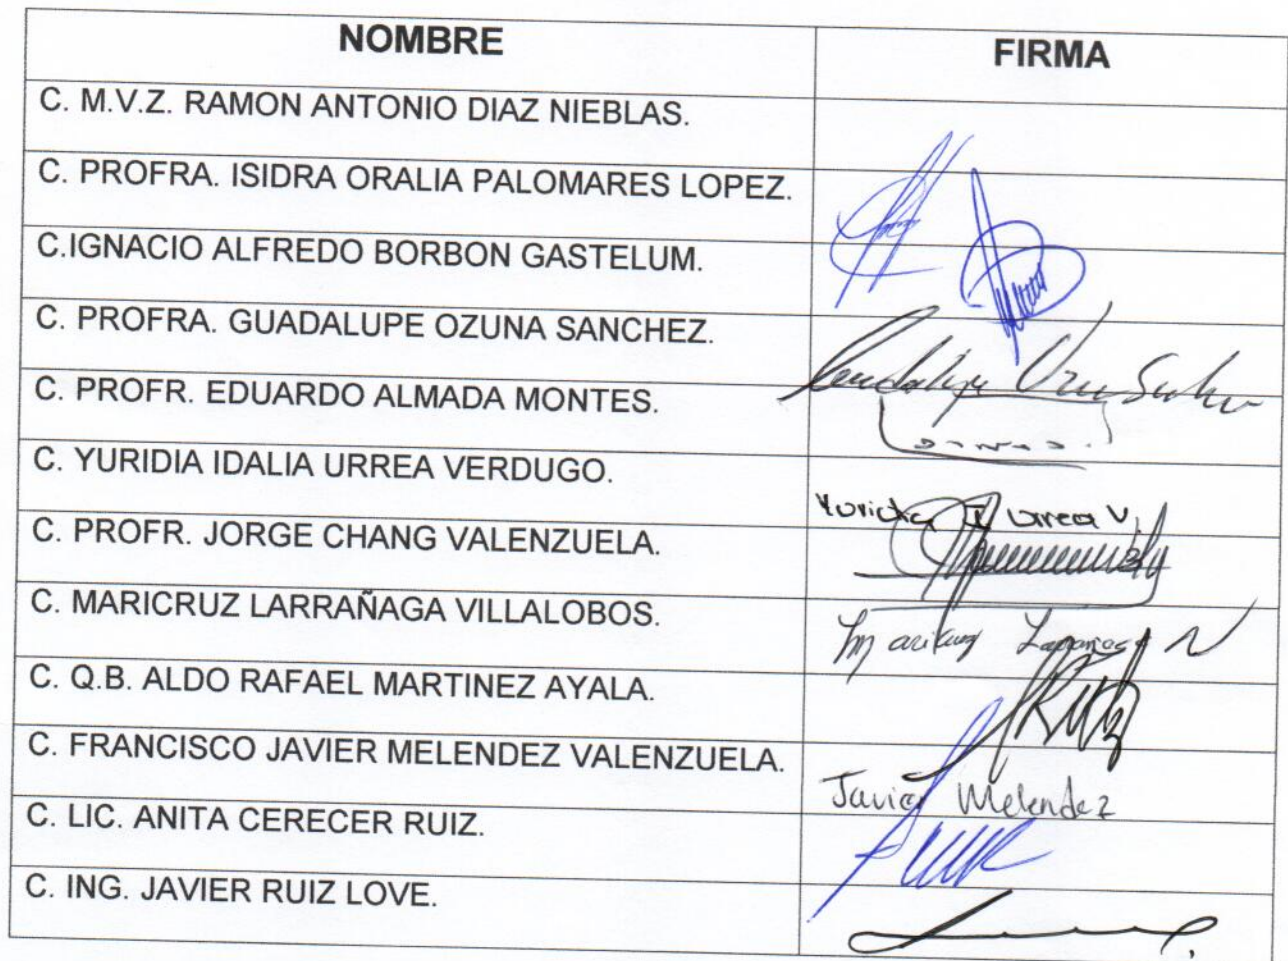 NOMBRE FIRMA
C. M.V.Z. RAMON ANTONIO DIAZ NIEBLAS.
C. PROFRA. ISIDRA ORALIA PALOMARES LOPEZ.
C.IGNACIO ALFREDO BORBON GASTELUM.
C. PROFRA. GUADALUPE OZUNA SANCHEZ.
C. PROFR. EDUARDO ALMADA MONTES.
C. YURIDIA IDALIA URREA VERDUGO.
Urrea V.
C. PROFR. JORGE CHANG VALENZUELA.
C. MARICRUZ LARRAÑAGA VILLALOBOS.
C. Q.B. ALDO RAFAEL MARTINEZ AYALA.
C. FRANCISCO JAVIER MELENDEZ VALENZUELA.
Javier Melendez
C. LIC. ANITA CERECER RUIZ.
C. ING. JAVIER RUIZ LOVE.